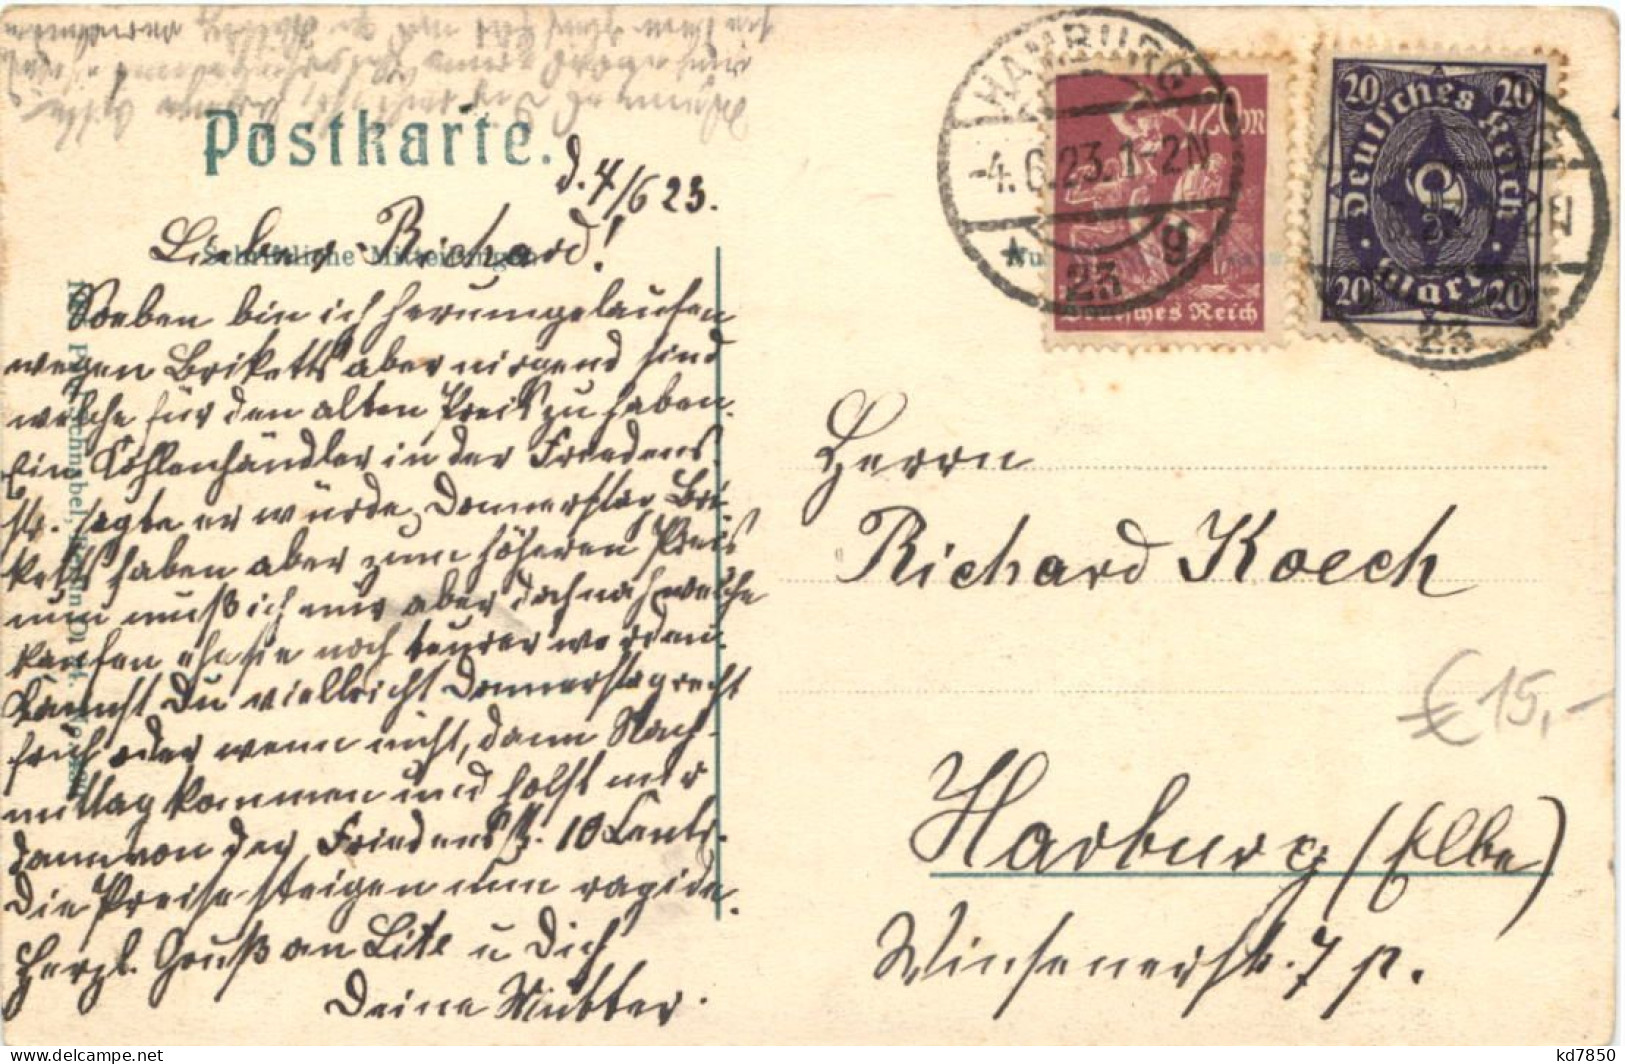 Postkarte.
d. 4/6 23.
Lieber Richard!
Schriftliche Mitteilungen
Soeben bin ich herumgelaufen
wegen Briketts aber nirgend sind
welche für den alten Preis zu haben.
Ein Kohlenhändler in der Friedens
str. sagte er würde, Donnerstag Bri-
ketts haben aber zum höheren Preis
nun muß ich mir aber doch noch welche
kaufen ehe sie noch teurer werden.
Kannst Du vielleicht Donnerstag recht
früh oder wenn nicht, dann Nach-
mittag kommen und holst mir
dann von der Friedensstr. 10 Centr.
Die Preise steigen nun rapide.
Herzl. Gruß an Lite u Dich
Deine Mutter.
HAMBURG
-4.6.23.1-2N
* 23 g
20M
Deutsches Reich
20 20
Deutsches Reich
20 Mark 20
23
Herrn
Richard Koech
€ 15,-
Harburg (Elbe)
Winsenerstr. 7 p.
kd7850